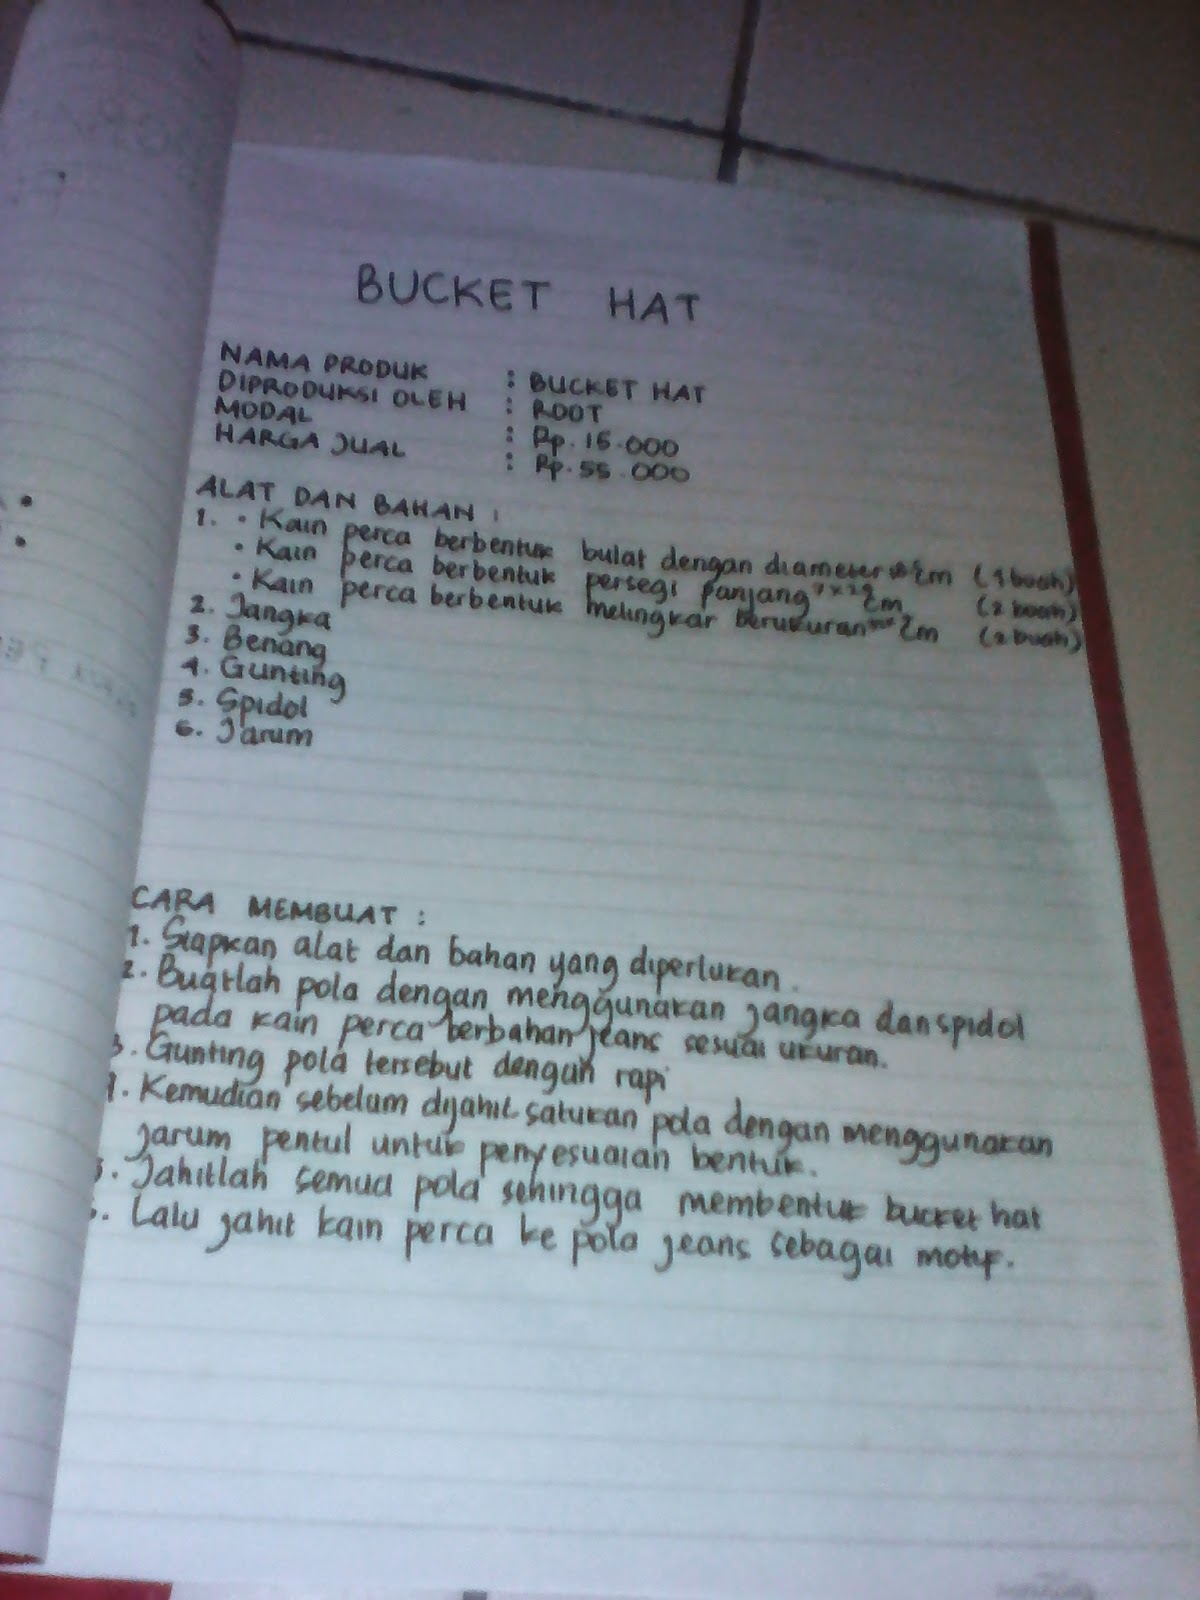 BUCKET HAT
NAMA PRODUK : BUCKET HAT
DIPRODUKSI OLEH : ROOT
MODAL : Rp. 15.000
HARGA JUAL : Rp. 55.000
ALAT DAN BAHAN :
1. • Kain perca berbentuk bulat dengan diameter cm (1 buah)
• Kain perca berbentuk persegi panjang cm (2 buah)
• Kain perca berbentuk melingkar berukuran cm (2 buah)
2. Jangka
3. Benang
4. Gunting
5. Spidol
6. Jarum
CARA MEMBUAT :
1. Siapkan alat dan bahan yang diperlukan.
2. Buatlah pola dengan menggunakan jangka dan spidol
pada kain perca berbahan jeans sesuai ukuran.
3. Gunting pola tersebut dengan rapi
4. Kemudian sebelum dijahit satukan pola dengan menggunakan
jarum pentul untuk penyesuaian bentuk.
5. Jahitlah semua pola sehingga membentuk bucket hat
6. Lalu jahit kain perca ke pola jeans sebagai motif.